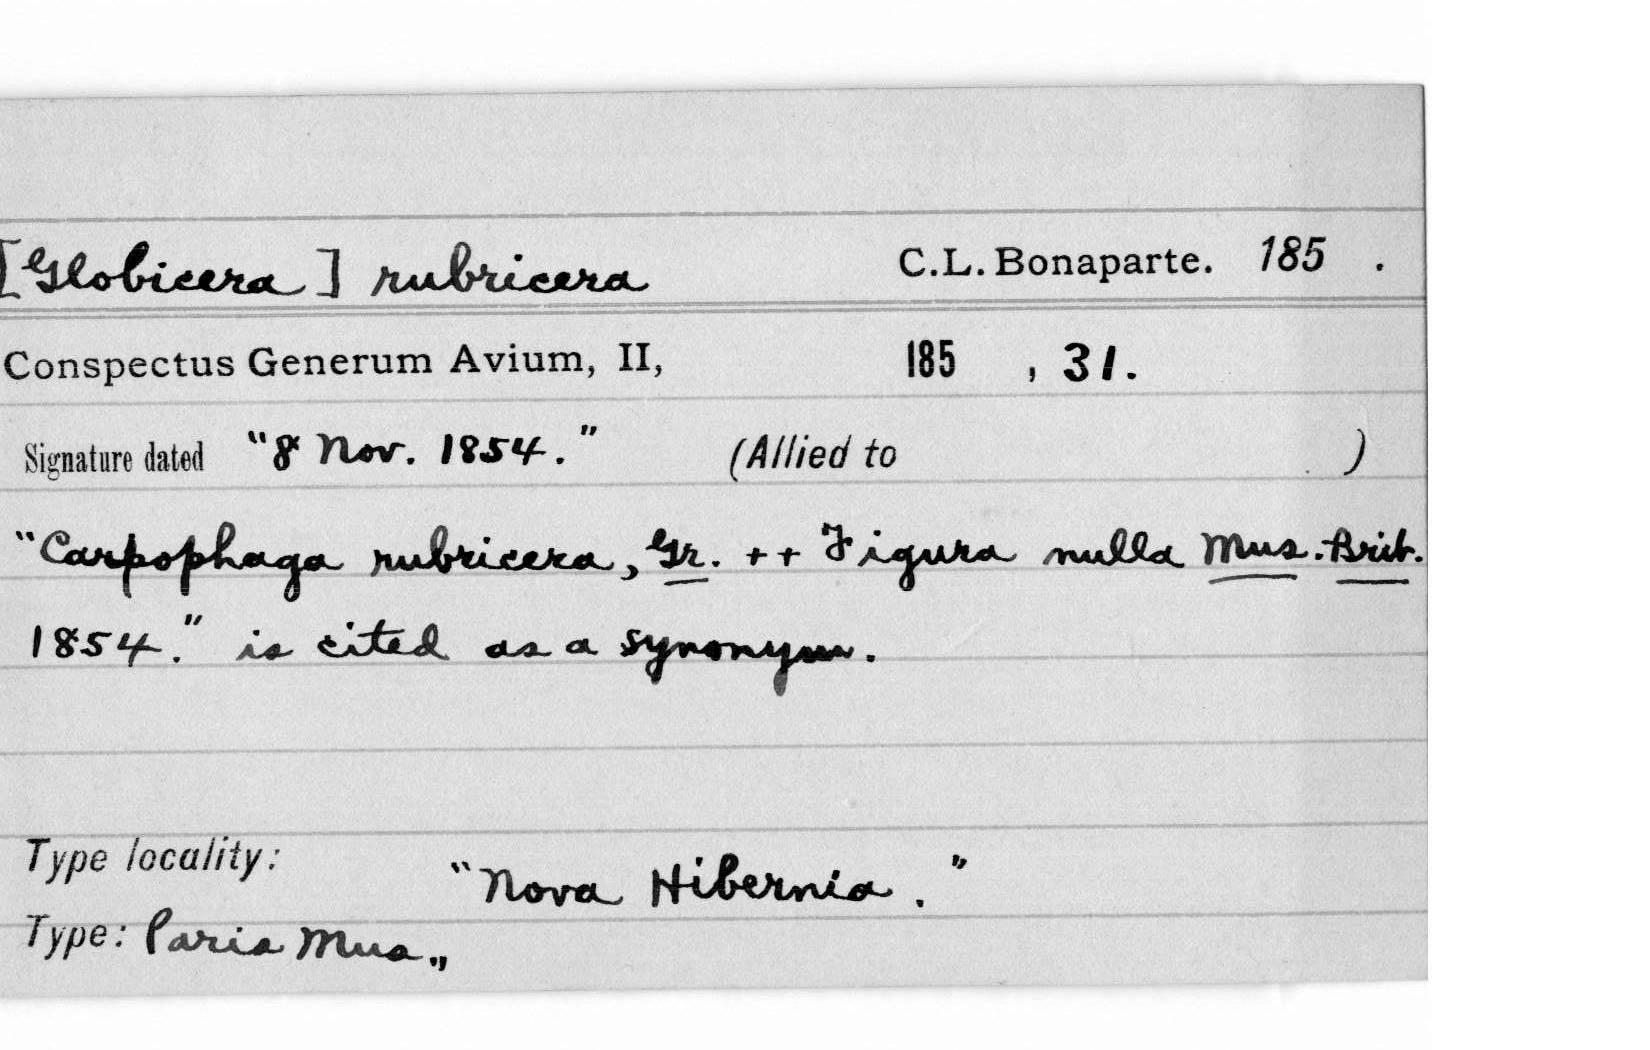 [Globicera] rubricera C.L. Bonaparte. 185 .
Conspectus Generum Avium, II, 185 , 31.
Signature dated "8 Nov. 1854." (Allied to )
"Carpophaga rubricera, Gr. ++ Figura nulla Mus. Brit.
1854." is cited as a synonym.
Type locality: "Nova Hibernia."
Type: Paris Mus.,